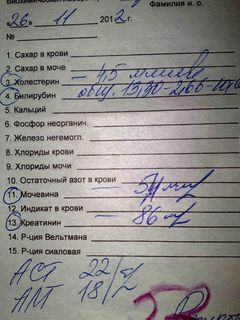 Биохимическая лаборатор
Фамилия и о.
«26» 11 2012 г.
№
1. Сахар в крови
2. Сахар в моче
3. Холестерин – 4,5 ммоль
4. Билирубин общ. 13,30 - 2,66 -
5. Кальций
6. Фосфор неорганич.
7. Железо негемогл.
8. Хлориды крови
9. Хлориды мочи
10. Остаточный азот в крови
11. Мочевина –
12. Индикат в крови
13. Креатинин – 86
14. Р-ция Вельтмана
15. Р-ция сиаловая
АСТ 22
АЛТ 18